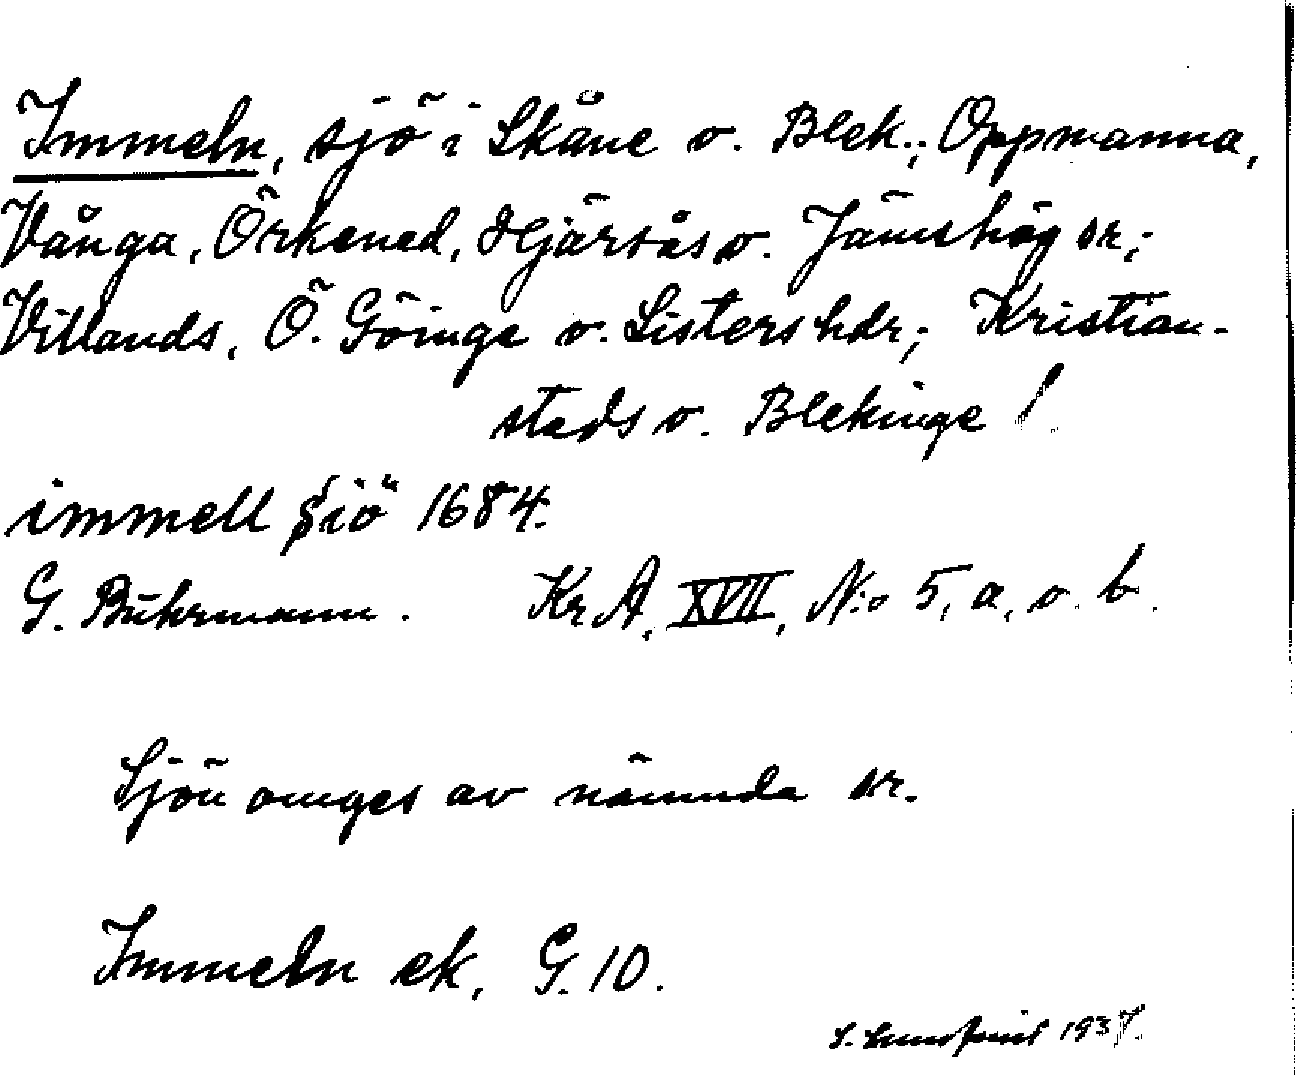 Immeln, sjö i Skåne o. Blek.; Oppmanna,
Vånga, Örkened, Hjärsås o. Jämshög sr;
Villands, Ö. Göinge o. Listers hdr; Kristian-
stads o. Blekinge l.
immell Siö 1684.
G. Buhrmann. KrA, XVII, N:o 5, a, o. b.
Sjön omges av nämnda sr.
Immeln ek, G. 10.
1937.